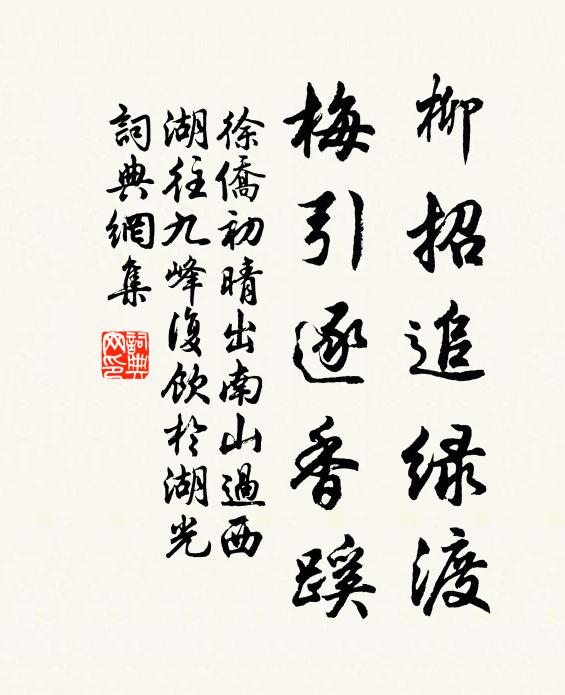 柳招追緑渡
梅引逐香蹊
徐僑初晴出南山過西
湖往九峰復飲於湖光
詞典網集
詞典
网印